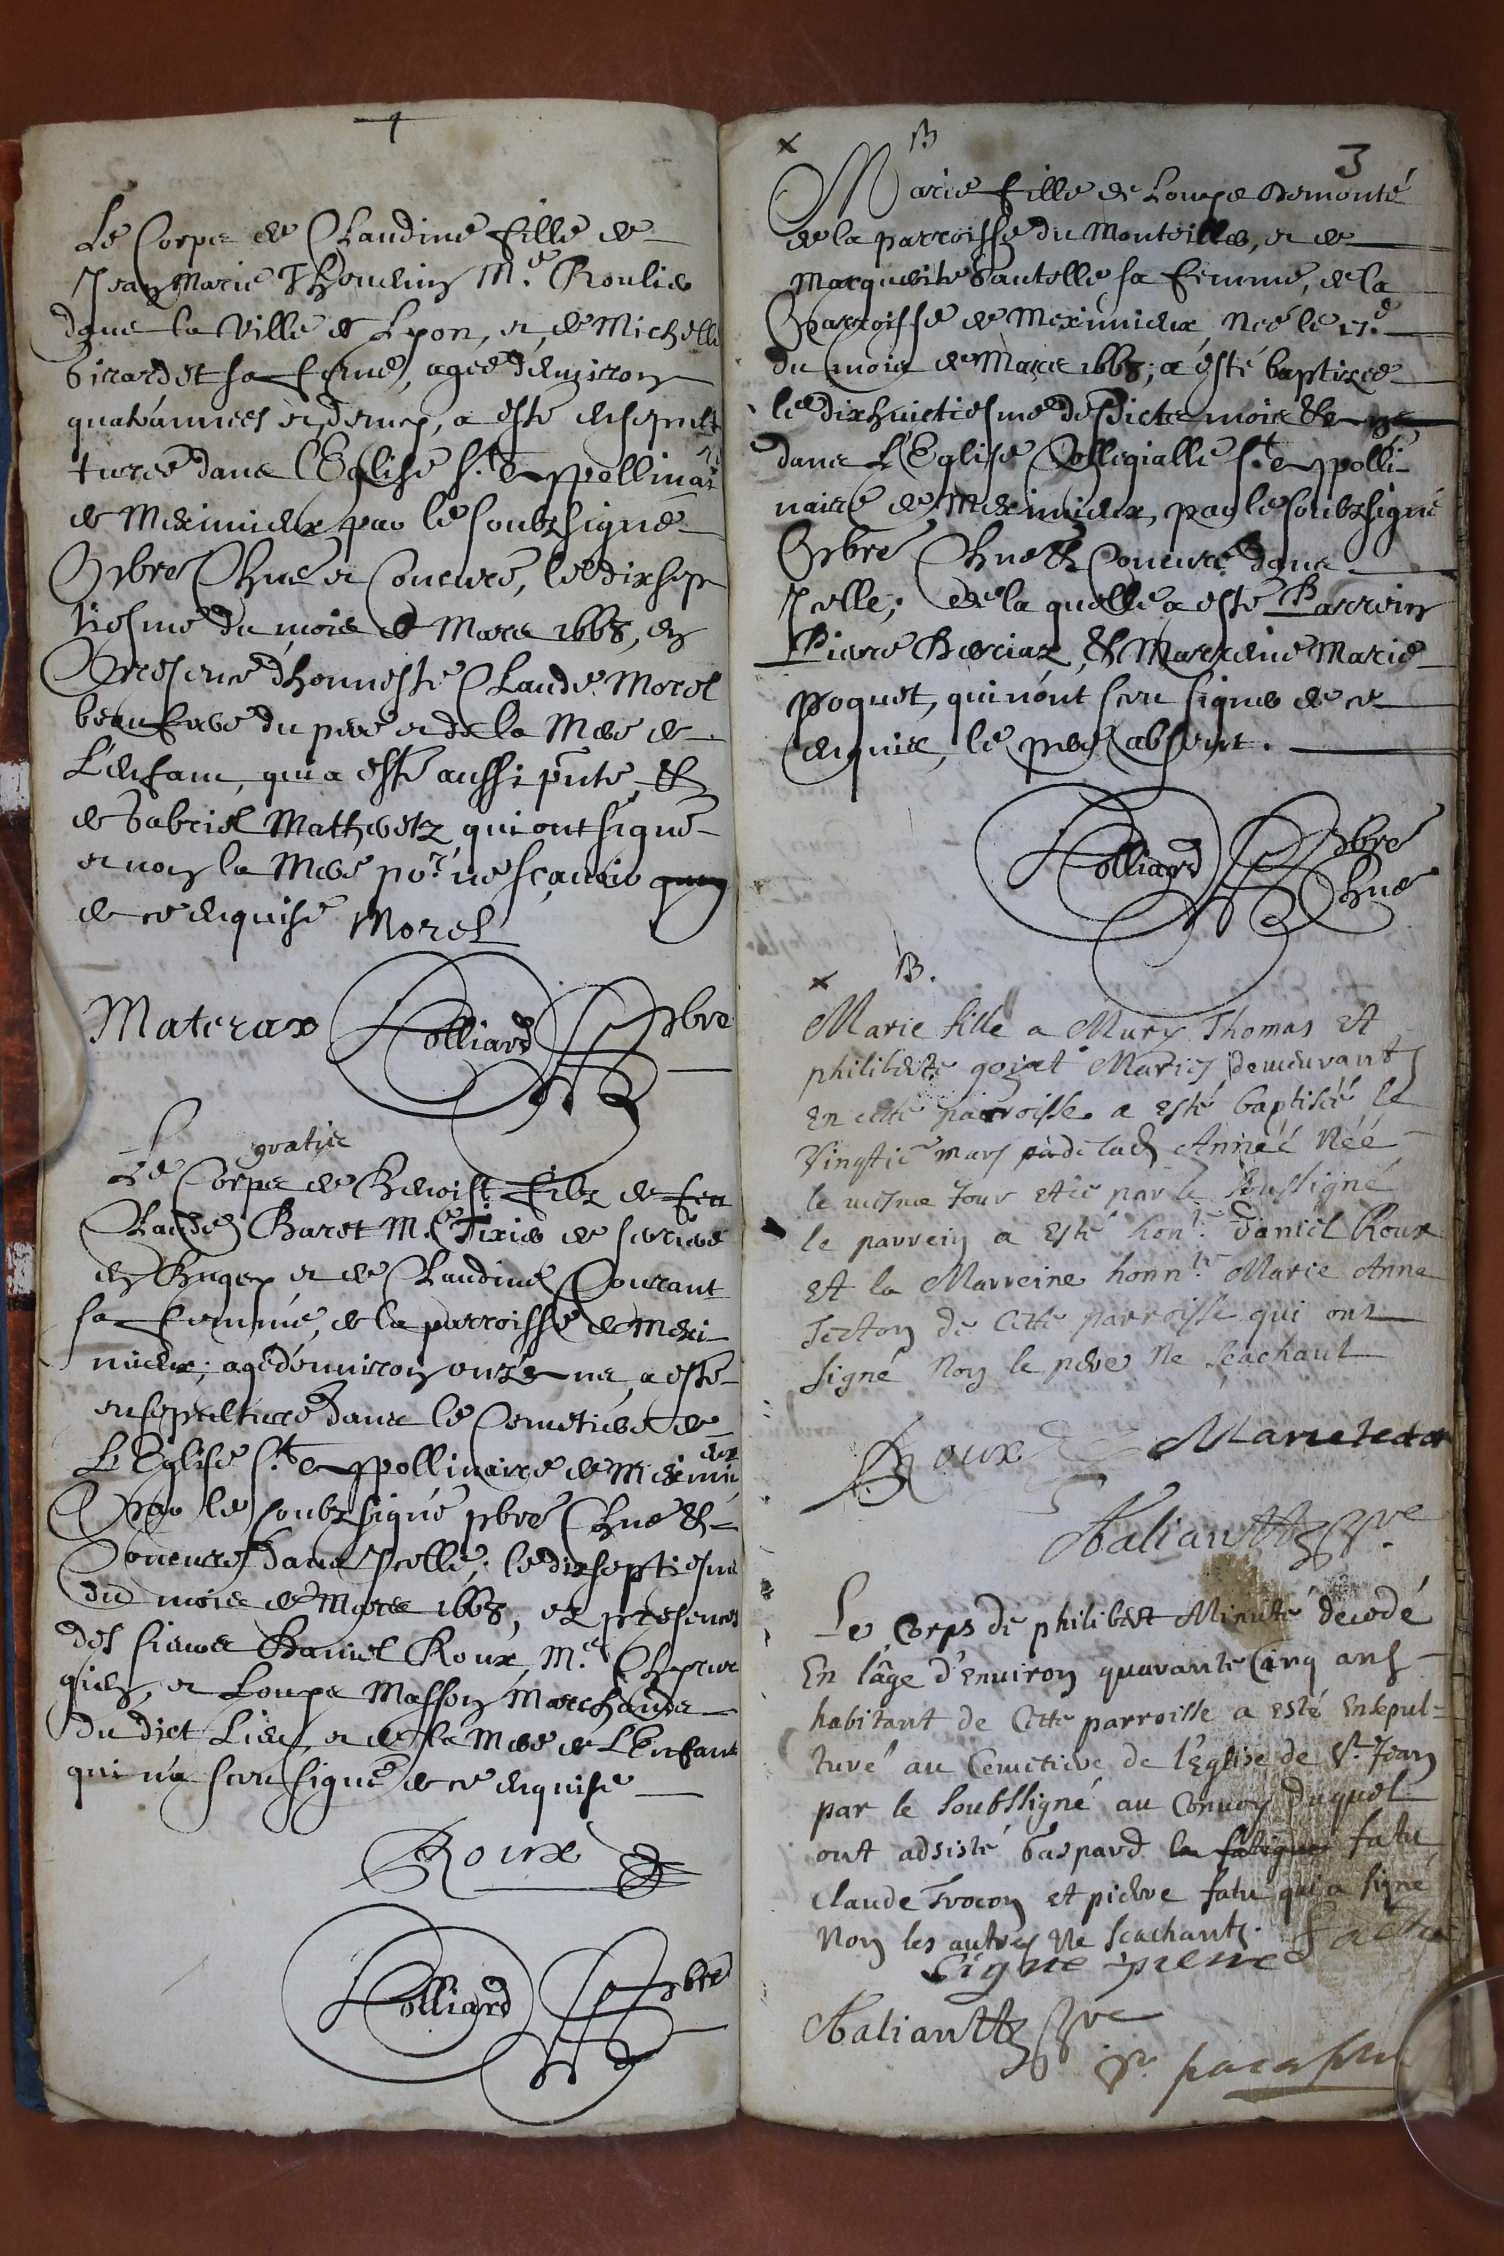 Le Corps de Claudine fille de
Jean Marie Thevenin M.e
dans la Ville de Lyon, et de Michelle
Girardet sa femme, agée d'environ
quatr'années et demy, a esté ensepul
turée dans l'Eglise St Appollinai
re
de Meximieux par le soubzsigné
Pbre Chne et Concuré, le dixsep
tiesme du mois de Mars 1668, en
Presence d'honneste Claude Morel
beaufrere du pere et de la Mere de
L'enfant, qui a esté aussi pnte, &
de Gabriel Matheretz qui ont signé
et non la Mere por. ne sçavoir
de ce enquise Morel
Materax Holliard pbre
gratis
Le Corps de Benoist filz de feu
Claude Baret M.e Tixier de
en Bugey et de Claudine Courant
sa femme, de la parroisse de Mexi
mieux; agé d'environ onze ans, a esté
ensepulturé dans le Cemetiere de
L'Eglise St Appollinaire de Meximi
eux
Par le soubzsigné pbre Chne &
Concuré dans Icelle; le dixseptiesme
du mois de Mars 1668, ez presences
des sieurs Daniel Roux, M.e Chyrur
gien, et Loups Masson Marchands
du dict Lieu, et de la Mere de L'Enfant
qui n'a sceu signé de ce enquise
Roux
Holliard pbre
3
x B
Marie fille de Loups Demonté
de la parroisse du Monteiller, et de
Marguerite Gautelle sa femme, de la
Parroisse de Meximieux, Née le 17.e
du mois de Mars 1668; a esté baptizée
le dixhuictiesme desdicts mois &
dans L'Eglise Collegialle St Appolli
naire de Meximieux, par le soubzsigné
Pbre Chne & Concuré dans
Icelle; de la quelle a esté Parrein
Pierre Berciaz, & Marreine Marie
poquet, qui n'ont sceu signer de ce
enquis, le pere absent.
Holliard Pbre
Chne
x B.
Marie fille a Mury Thomas et
philiberte goyet Mariez demeurants
en cette parroisse a esté baptisée le
Vingtie mars Année Née
le mesme Jour par le soussigné
le parrein a esté hon.te Daniel Roux
et la Marreine honn.te Marie Anne
Jecton de cette parroisse qui ont
signé Non le pere Ne sçachant
Roux Marie
Le Corps de philibert Minute decedé
En l'âge d'environ quarante Cinq ans
habitant de Cette parroisse a esté Ensepul=
turé au Cemetiere de l'Eglise de St Jean
par le soubssigné au Convoy duquel
ont adsisté Gaspard fatu
Claude Trocon et pierre fatu qui a signé
Non les autres Ne scachants.
signe pierre